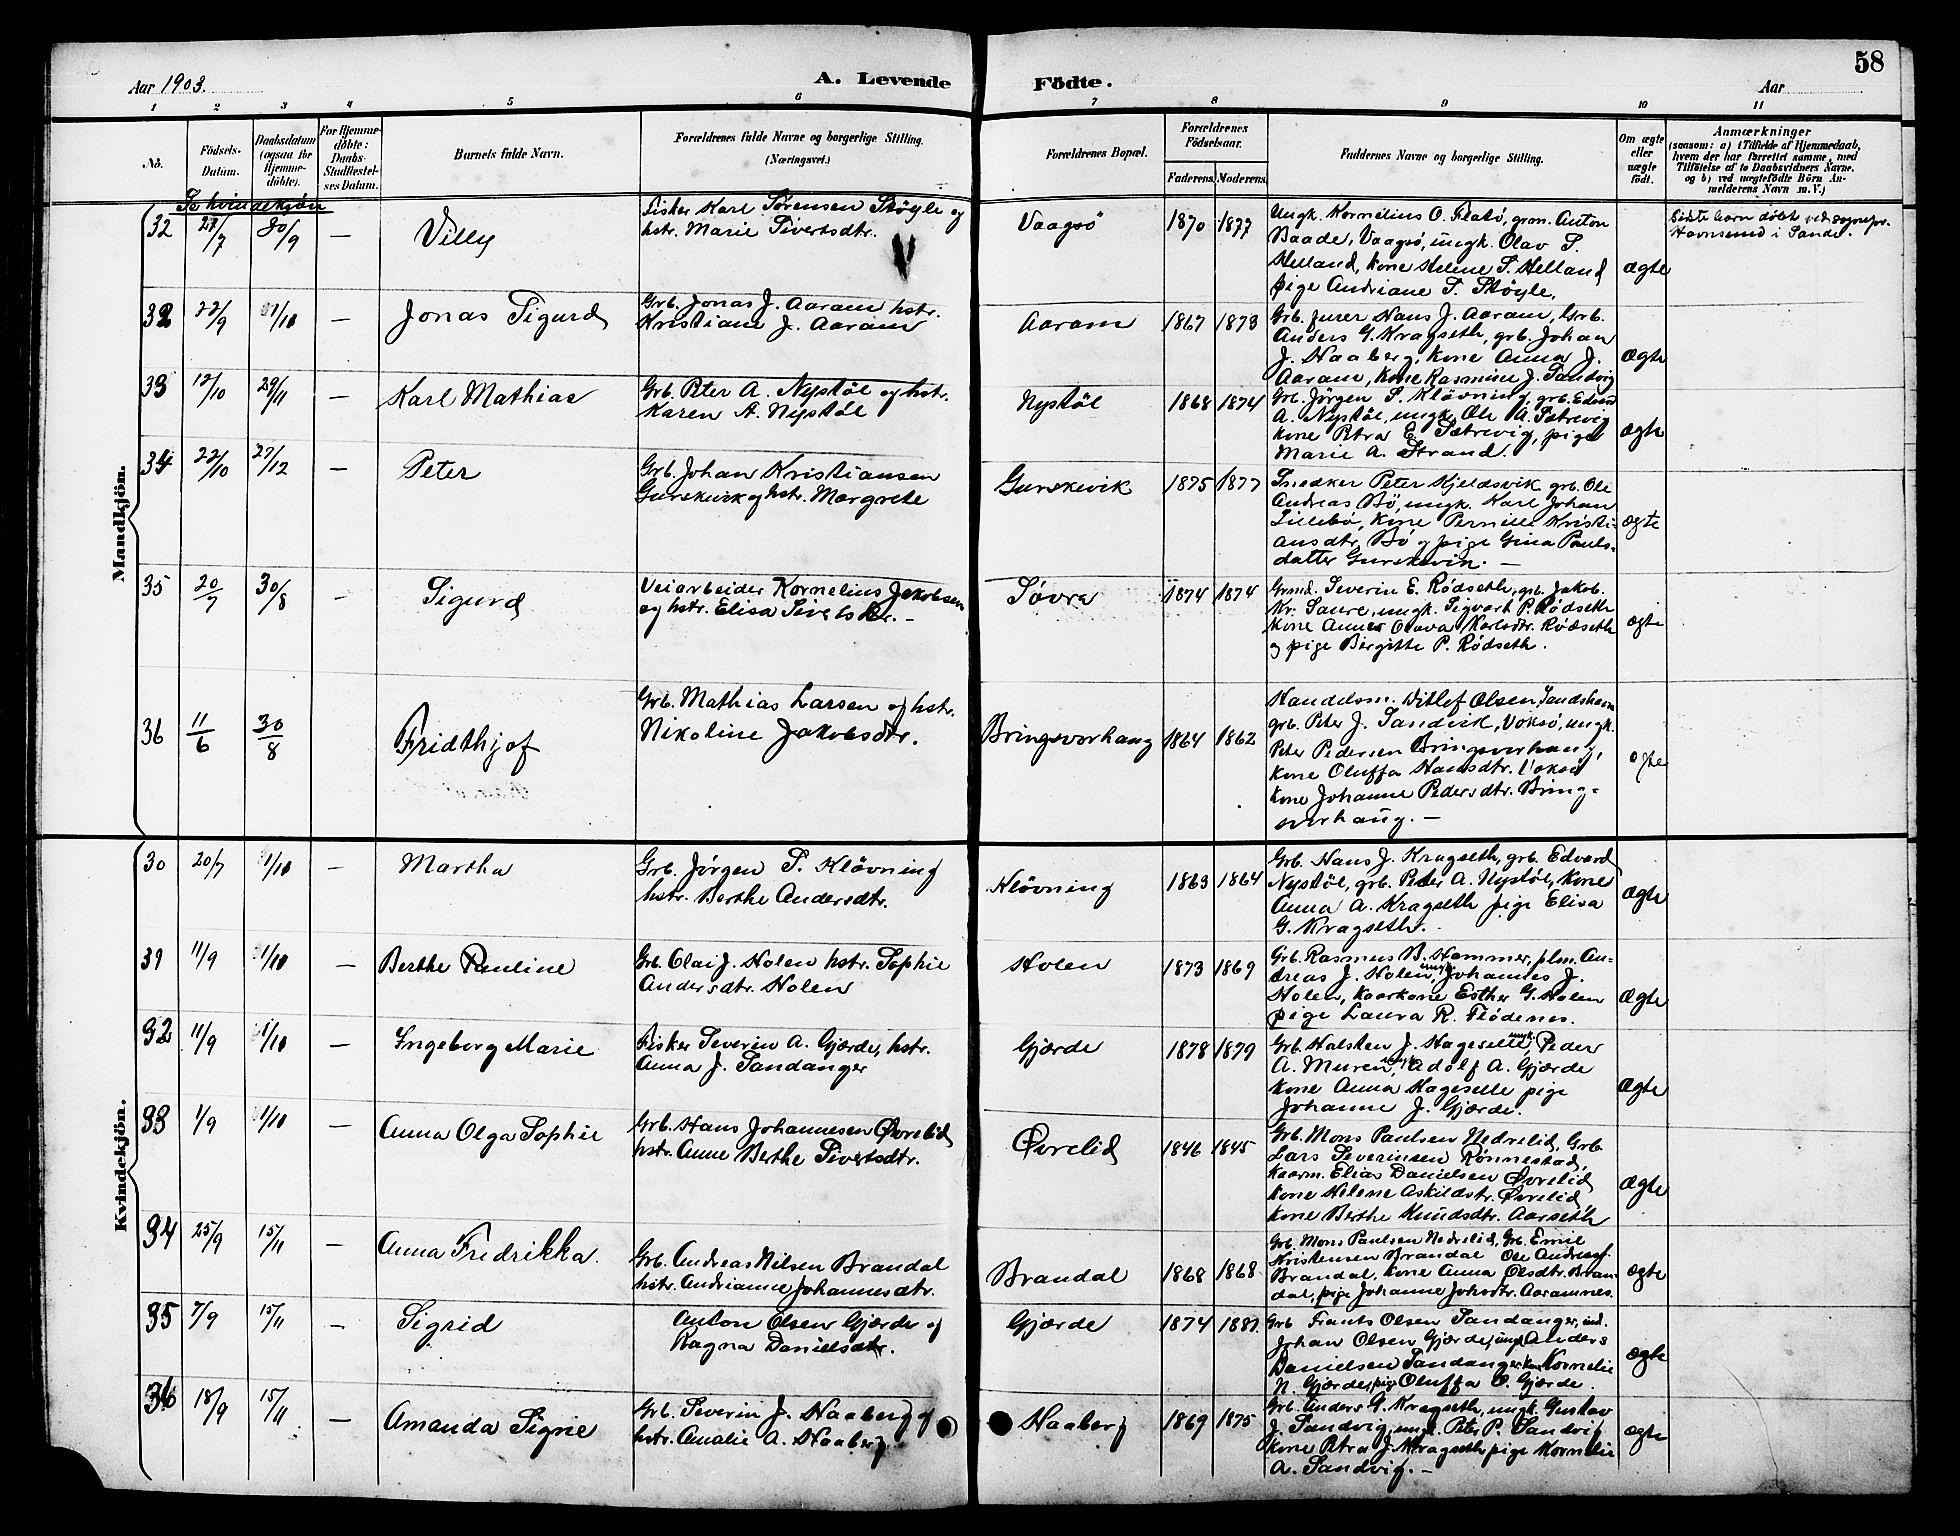 58
Aar 1903.
A. Levende Födte.
Aar
1 2 3 4 5 6 7 8 9 10 11
No.
Födsels-
Datum.
Daabsdatum
(ogsaa for
Hjemme-
döbte).
For Hjemme-
döbte:
Daabs-
Stadfæstel-
ses Datum.
Barnets fulde Navn.
Forældrenes fulde Navne og borgerlige Stilling.
(Næringsvei.)
Forældrenes Bopæl.
Forældrenes
Födselsaar.
Faderens. Moderens.
Faddernes Navne og borgerlige Stilling.
Om ægte
eller
uægte
födt.
Anmærkninger
(saasom: a) i Tilfælde af Hjemmedaab,
hvem der har forrettet samme, med
Tilföielse af to Daabsvidners Navne.
og b) ved uægtefödte Börn An-
melderens Navn m. V.)
Se kvindekjøn
Mandkjön.
32 23/7 20/9 — Villy
Fisker Karl Sørensen Støyle og
hstr. Marie Sivertsdtr.
Vaagsö 1870 1877
Ungk. Kornelius O. Flatö, grm. Anton
Baade, Vaagsö, ungk. Olav S.
Helland, kone Helene S. Helland
pige Andriane S. Støyle.
ægte
Sidste barn døbt ved sognepr.
Havnsund i Sande.
32 22/9 1/10 — Jonas Sigurd
Grb. Jonas J. Aaram hstr.
Kristiane J. Aaram
Aaram 1867 1873
Grb. furer Hans J. Aaram, Grb.
Anders G. Kragseth, grb. Johan
J. Haaberg, kone Anna J.
Aaram, kone Rasmine J. Sandvig
ægte
33 12/10 29/11 — Karl Mathias
Grb. Peter A. Nystøl og hstr.
Karen A. Nystøl
Nystøl 1868 1874
Grb. Jørgen S. Kløvning, grb. Edvard
A. Nystøl, ungk. Ole A. Sætrevig
kone Petra E. Sætrevig, pige
Marie A. Strand.
ægte
34 22/10 27/12 — Peter
Grb. Johan Kristiansen
Gurskevik og hstr. Margrete
Gurskevik 1875 1877
Snedker Peter Kjeldsvik grb. Ole
Andreas Bø, ungk. Karl Johan
Lillebø, kone Pernille Kristi-
ansdtr. Bø og pige Gina Pauls-
datter Gurskevik. —
ægte
35 20/7 30/8 — Sigurd
Veiarbeider Kornelius Jakobsen
og hstr. Elisa Sivertsdtr. —
Søvra 1874 1874
Grmd. Severin E. Rødseth, grb. Jakob.
Kr. Saure, ungk. Sigvart P. Rødseth
kone Annes Olava Karlsdtr. Rødseth
og pige Birgitte P. Rødseth.
ægte
36 11/6 30/8 Fridthjof
Grb. Mathias Larsen og hstr.
Nikoline Jakobsdtr.
Bringsvorhaug 1864 1862
Handelsm. Ditlef Olsen, Sandshavn
grb. Peter J. Sandvik, Voksø, ungk.
Peter Pedersen Bringsvorhaug,
kone Oluffa Hansdtr. Voksø
kone Johanne Pedersdtr. Bring-
svorhaug. —
ægte
Kvindekjön.
30 20/7 1/10 — Martha
Grb. Jörgen S. Kløvning
hstr. Berthe Andersdtr.
Kløvning 1863 1864
Grb. Hans J. Kragseth, grb. Edvard
Nystøl, grb. Peter A. Nystøl, kone
Anna A. Kragseth pige Elisa
G. Kragseth.
ægte
31 11/9 1/10 — Berthe Pauline
Grb. Olai J. Holen hstr. Sophie
Andersdtr. Holen
Holen 1873 1869
Grb. Rasmus B. Hammer, plm. An-
dreas J. Holen, ungk. Johannes J.
Holen, kaarkone Esther G. Holen
pige Laura R. Flödenes.
ægte
32 11/9 1/10 — Ingeborg Marie
Fisker Severin A. Gjærde, hstr.
Anna J. Sandanger
Gjærde 1878 1879
Grb. Halsten J. Hageselle, ungk. Peder
A. Muren, ungk. Adolf A. Gjærde
kone Anna Hageselle pige
Johanne J. Gjærde.
ægte
33 1/9 1/10 — Anna Olga Sophie
Grb. Hans Johannesen Øvrelid
hstr. Anne Berthe Sivertsdtr.
Øvrelid 1846 1845
Grb. Mons Paulsen Nedrelid, Grb.
Lars Severinsen Rönnestad,
kaarm. Elias Danielsen Øvrelid
kone Helene Askildstr. Øvrelid
kone Berthe Knudsdtr. Aarseth
ægte
34 25/9 15/11 — Anna Fredrikka.
Grb. Andreas Nilsen Brandal
hstr. Andrianne Johannesdtr.
Brandal 1868 1868
Grb. Mons Paulsen Nedrelid, Grb. Emil
Kristensen Brandal Ole Andreas.
Brandal, kone Anna Olsdtr. Bran-
dal, pige Johanne Johsdtr. Aaramnes.
ægte
35 7/9 15/11 — Sigrid
Anton Olsen Gjærde og
Ragna Danielsdtr.
Gjærde 1874 1887.
Grb Frants Olsen Sandanger, ind.
Johan Olsen Gjærde, ungk Anders
Danielsen Sandanger, kone Kornelie
N. Gjærde, pige Oluffa O. Gjærde.
ægte
36 18/9 15/11 — Amanda Signe
Grb. Severin J. Haaberg og
hstr. Amalie A. Haaberg.
Haaberg 1869 1875
Grb. Anders G. Kragseth, ungk. Gustav
J. Sandvig, ungk. Peter P. Sandvig
kone Petra J. Kragseth, pige Kornelie
A. Sandvig. —
ægte